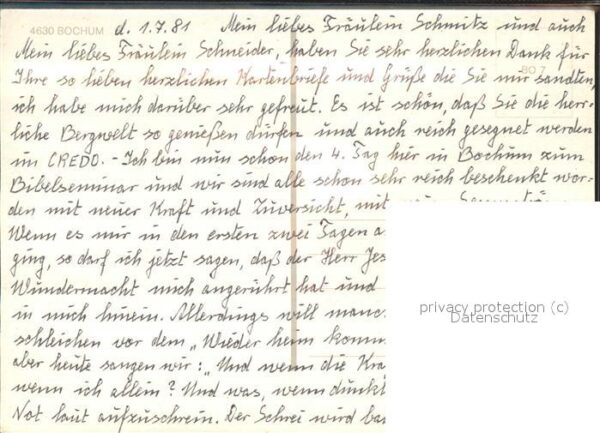 4630 BOCHUM d. 1.7.81 Mein liebes Fräulein Schmitz und auch
Mein liebes Fräulein Schneider, haben Sie sehr herzlichen Dank für
Ihre so lieben herzlichen Kartenbriefe und Grüße die Sie mir sandten,
ich habe mich darüber sehr gefreut. Es ist schön, daß Sie die herr-
liche Bergwelt so genießen dürfen und auch reich gesegnet werden
im CREDO. - Ich bin nun schon den 4. Tag hier in Bochum zum
Bibelseminar und wir sind alle schon sehr reich beschenkt wor-
den mit neuer Kraft und Zuversicht, mit
Wenn es mir in den ersten zwei Tagen a
ging, so darf ich jetzt sagen, daß der Herr Jes
Wundermacht mich angerührt hat und
in mich hinein. Allerdings will manc
schleichen vor dem "Wieder heim komm
aber heute sangen wir: "Und wenn die Kra
wenn ich allein? Und was, wenn dunkl
Not laut aufzuschrein. Der Schrei wird ba
privacy protection (c)
Datenschutz